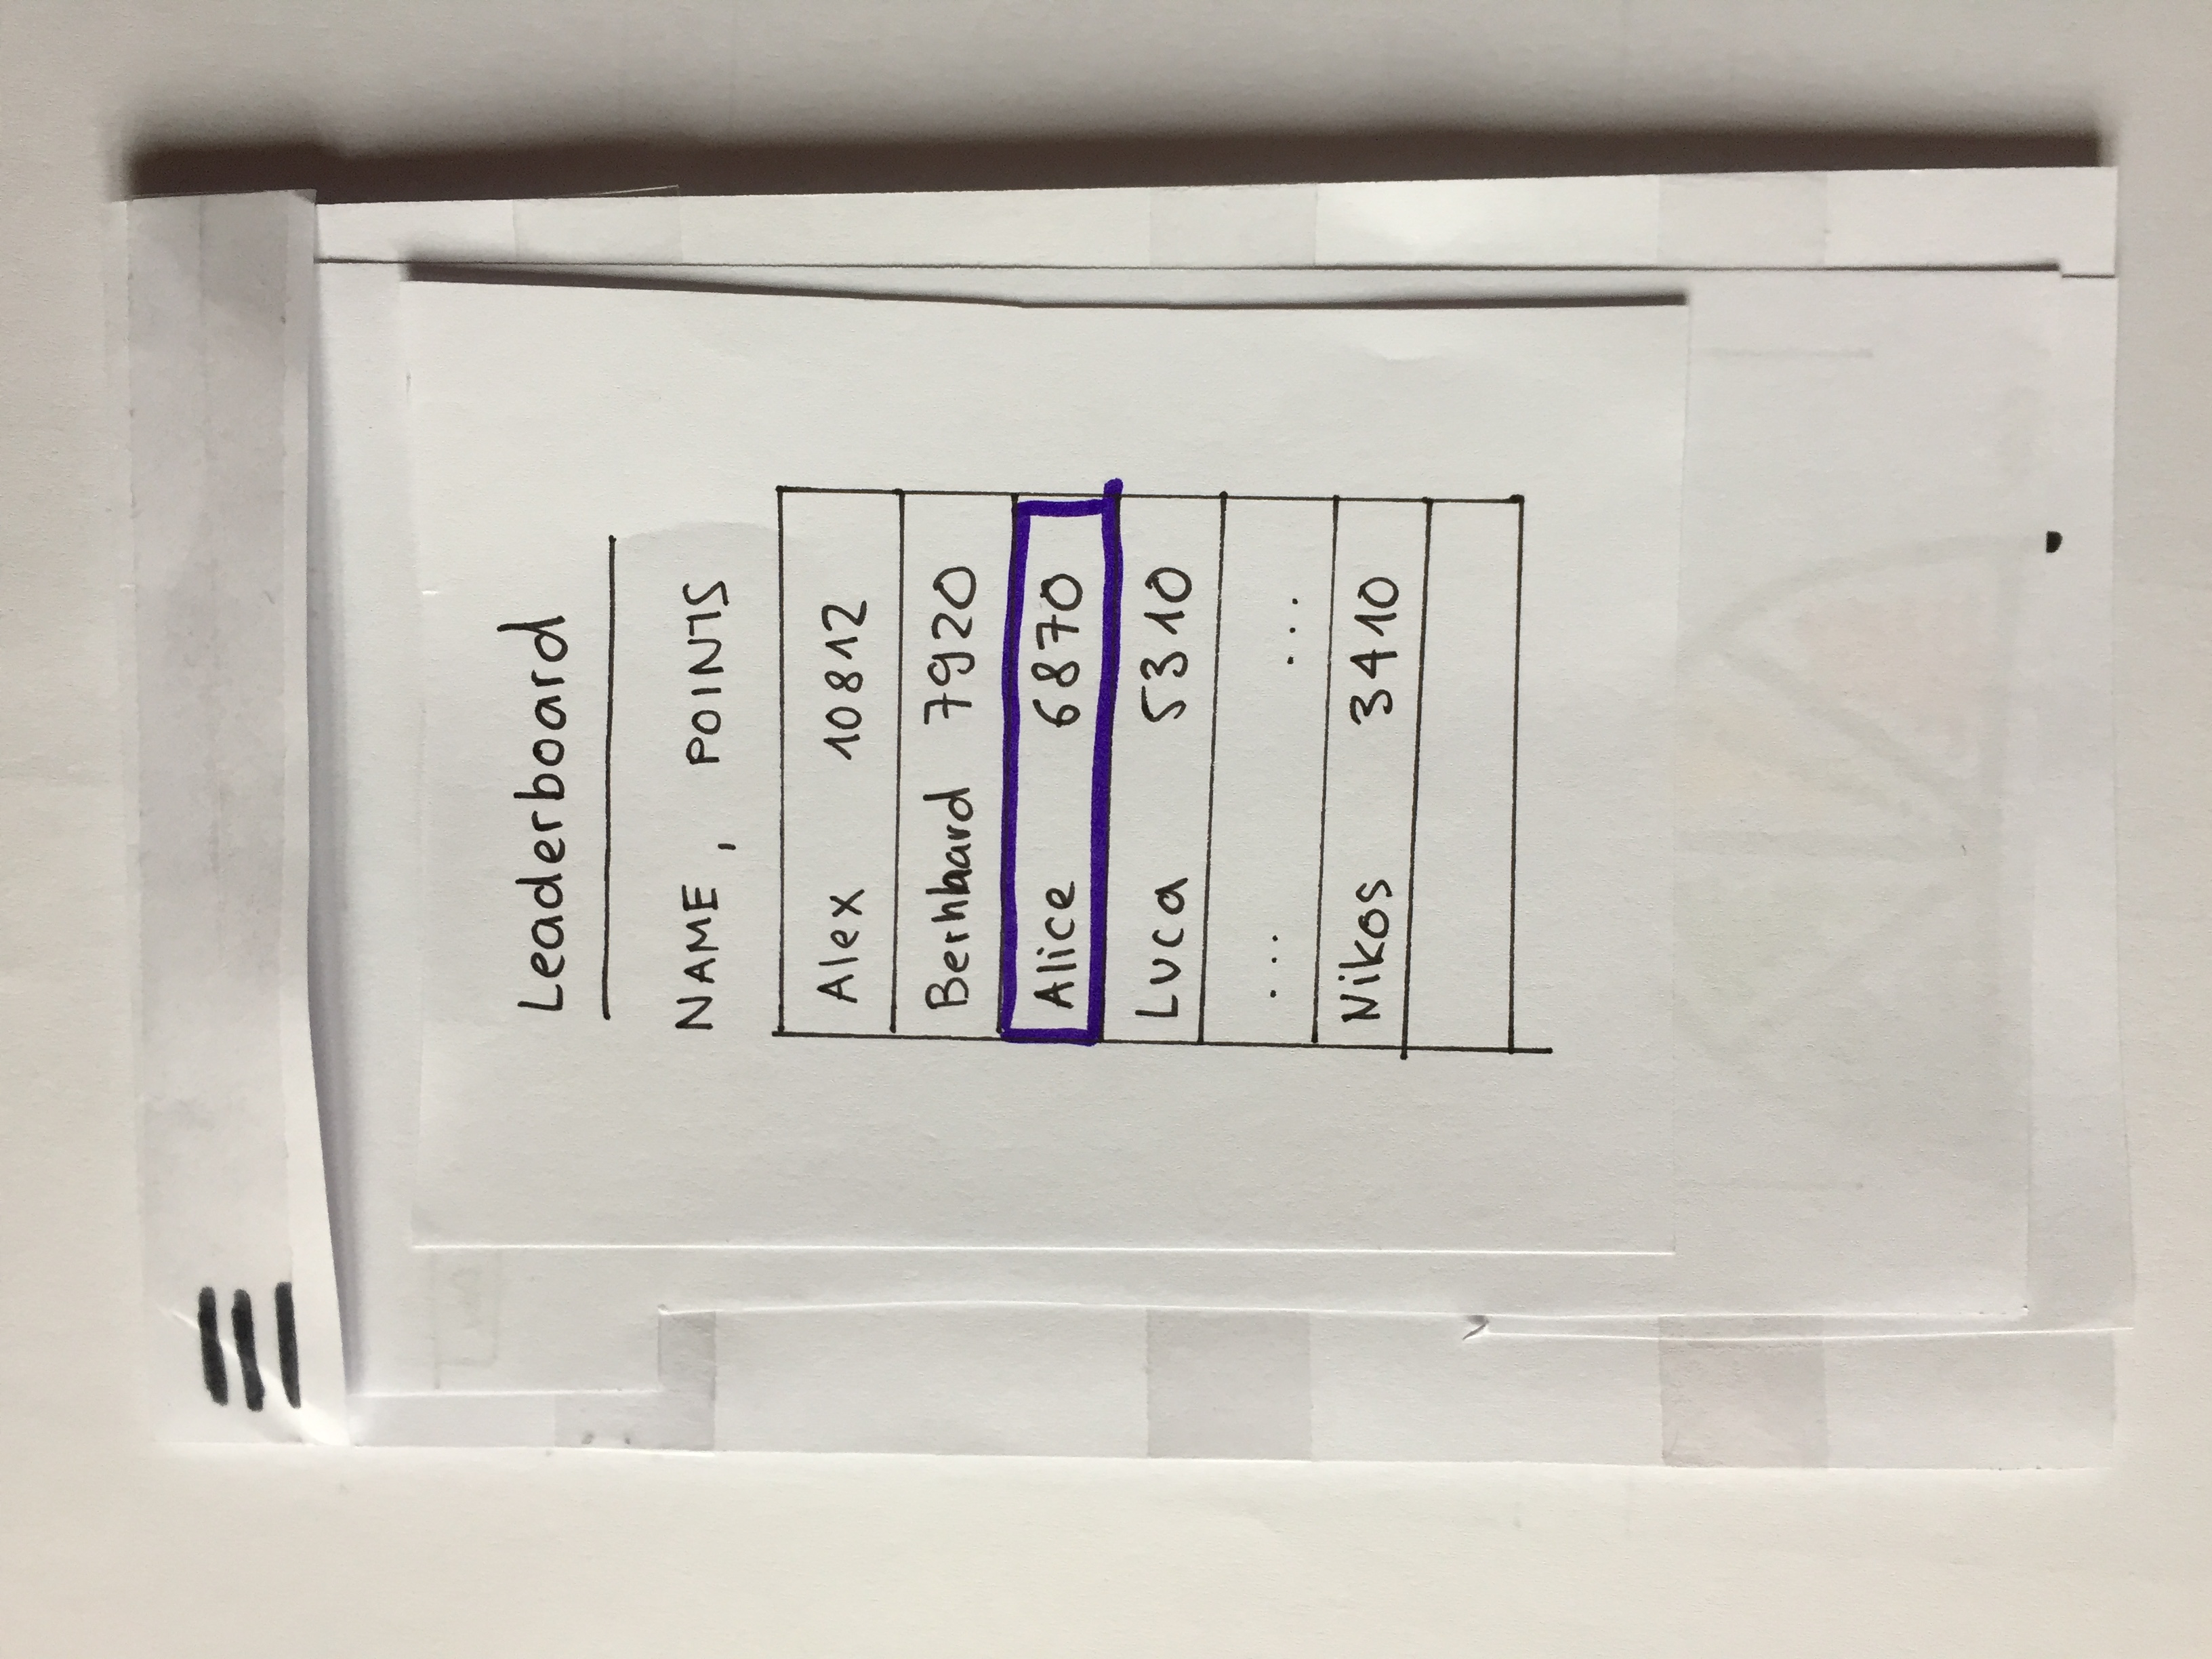 Leaderboard
NAME, POINTS
Alex 10812
Bernhard 7920
Alice 6870
Luca 5310
... ...
Nikos 3410